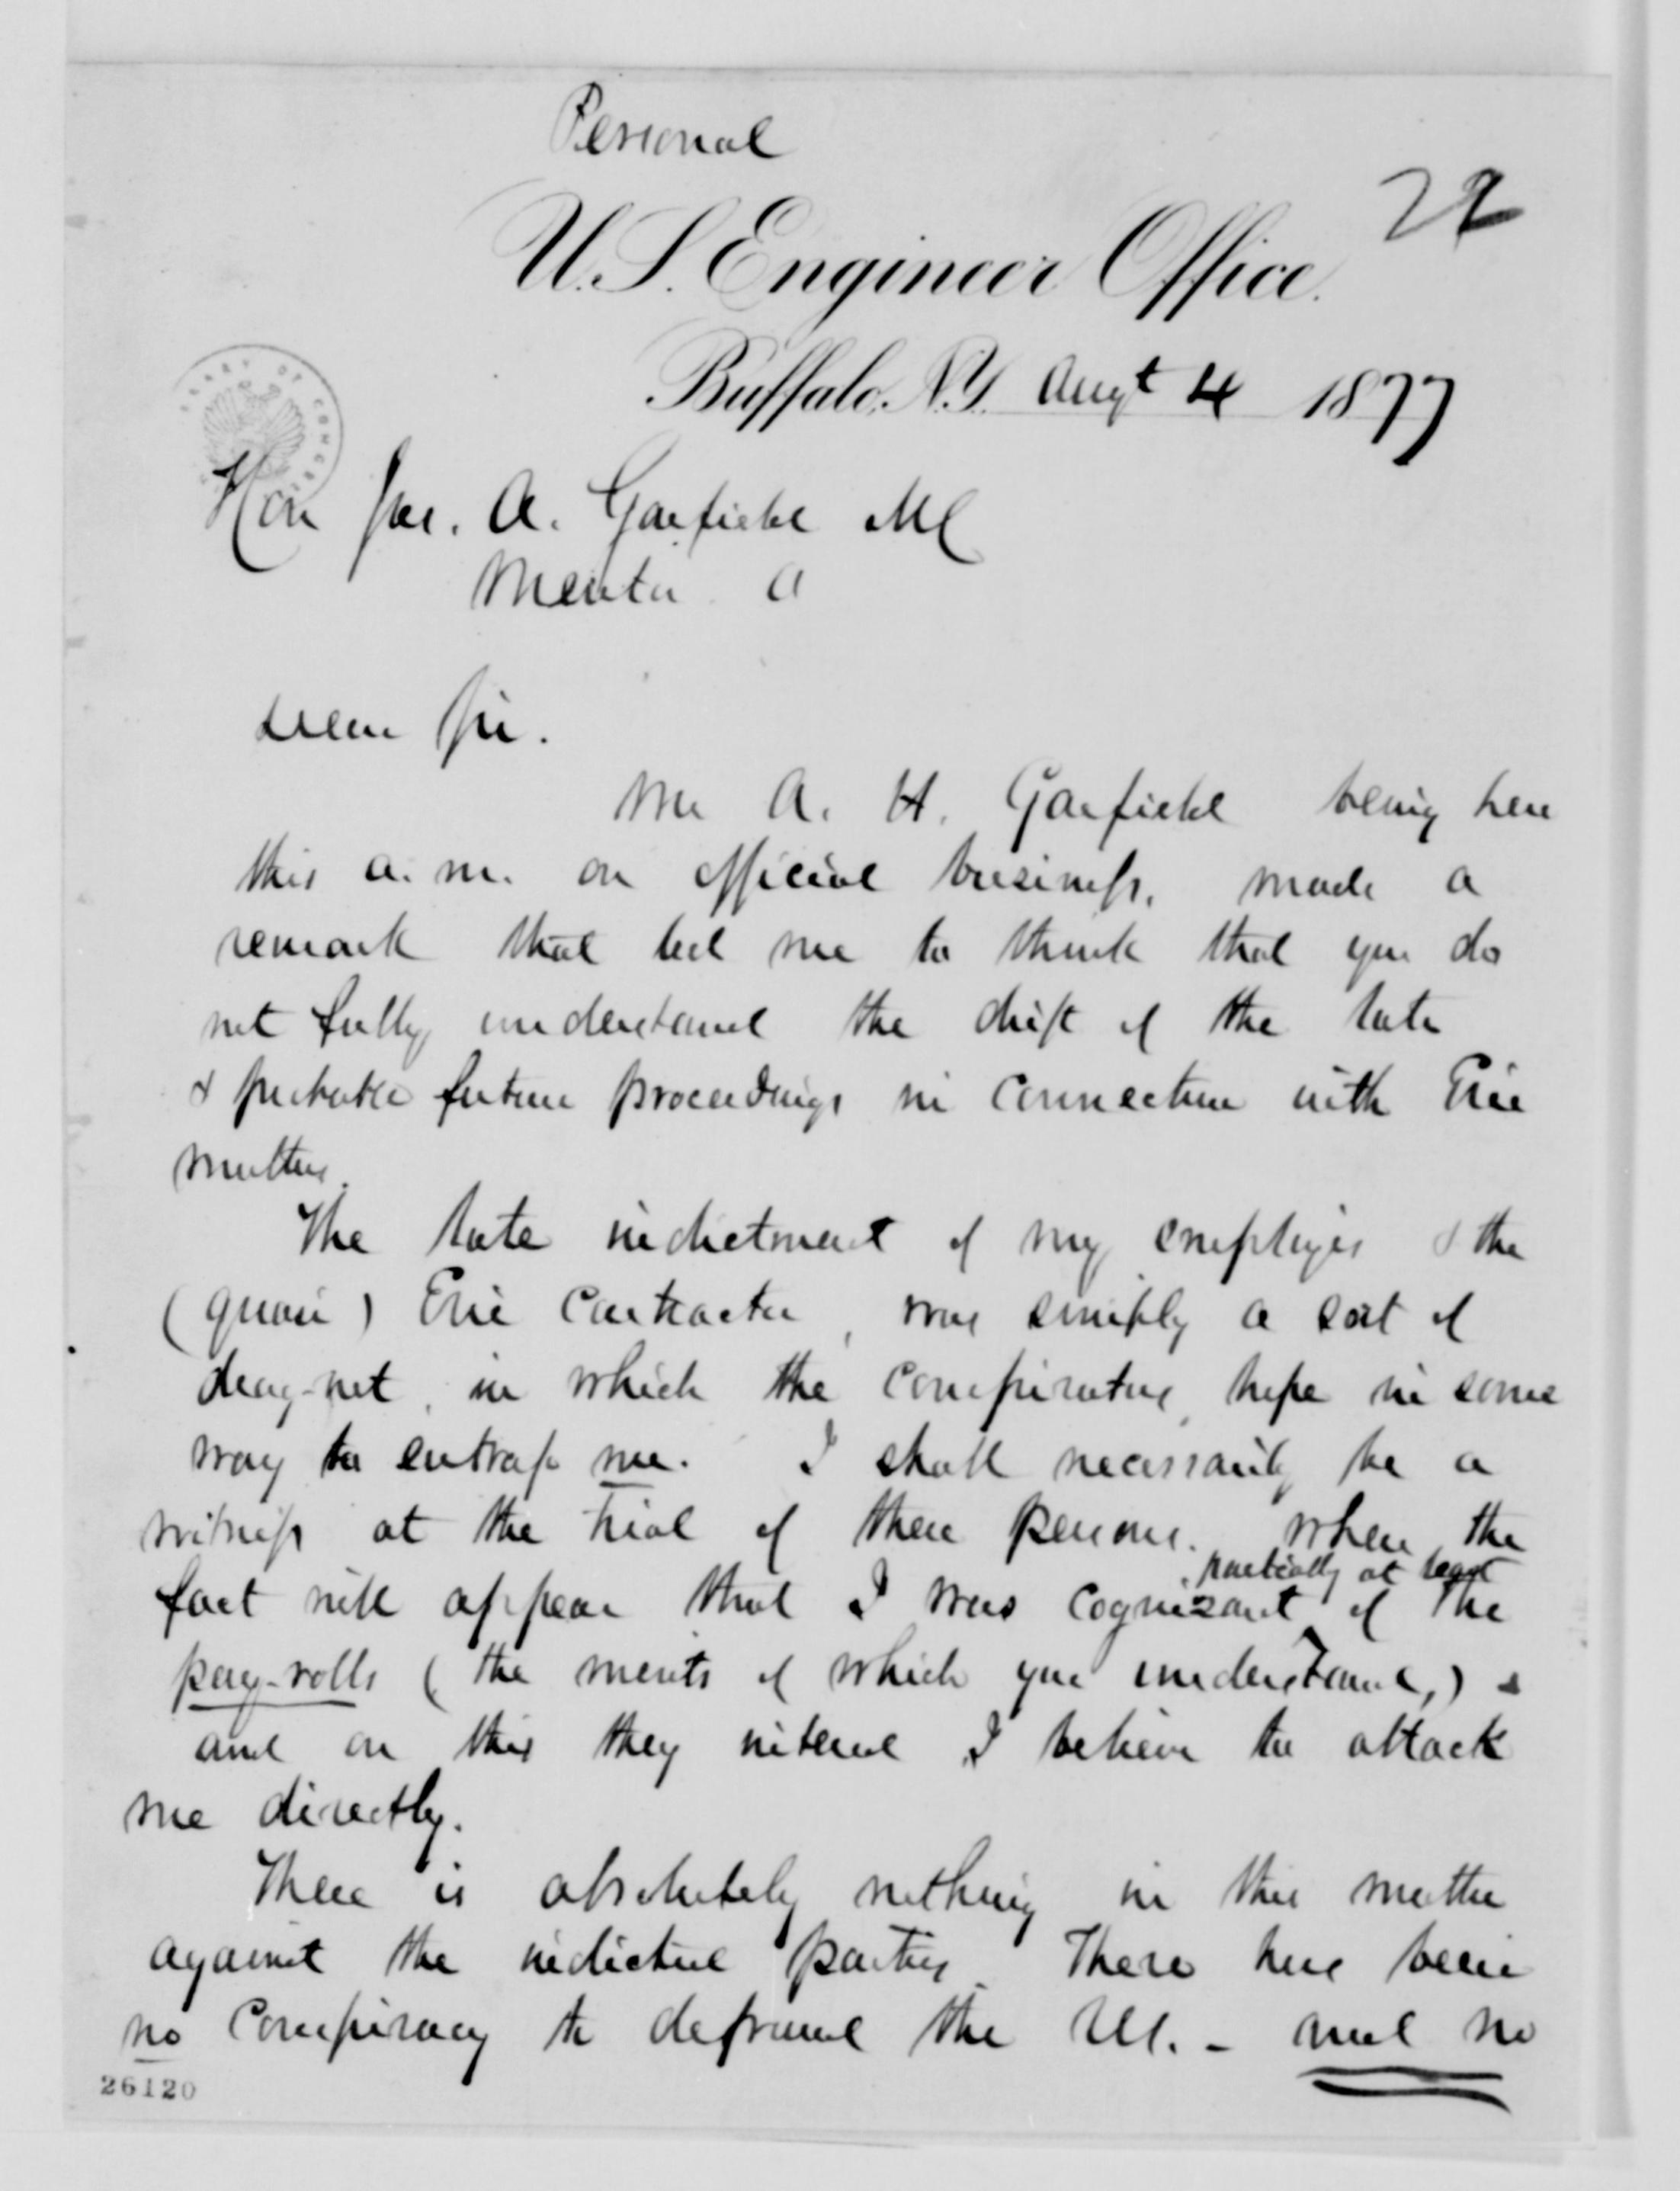 Personal
22
U.S. Engineer Office.
Buffalo, N.Y. Augt 4 1877
LIBRARY OF CONGRESS
Hon Jas. A. Garfield MC
Mentor O
Dear Sir.
Mr A. H. Garfield being here
this a.m. on official business, made a
remark that led me to think that you do
not fully understand the drift of the late
& probable future proceedings in connection with Erie
matters.
The late indictment of my employes & the
(quasi) Erie Contractor, was simply a sort of
drag-net, in which the conspirators, hope in some
way to entrap me. I shall necessarily be a
witness at the trial of these persons. When the
fact will appear that I was cognizant, partially at least of the
pay-rolls (the merits of which you understand,) &
and on this they intend I believe to attack
me directly.
There is absolutely nothing in this matter
against the indicted parties. There has been
no conspiracy to defraud the US. - and no
26120